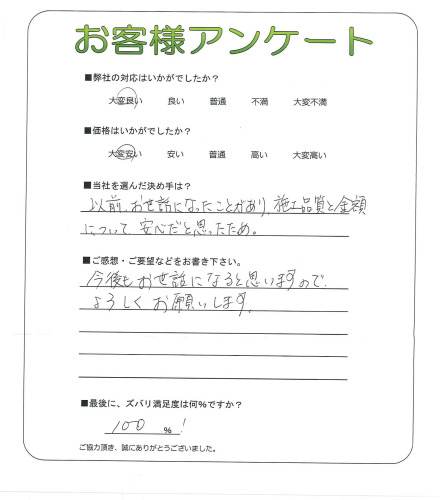 お客様アンケート
■弊社の対応はいかがでしたか？
大変良い 良い 普通 不満 大変不満
■価格はいかがでしたか？
大変安い 安い 普通 高い 大変高い
■当社を選んだ決め手は？
以前、お世話になったことがあり、施工品質と金額
について、安心だと思ったため。
■ご感想・ご要望などをお書き下さい。
今後もお世話になると思いますので、
よろしくお願いします。
■最後に、ズバリ満足度は何％ですか？
100 ％!
ご協力頂き、誠にありがとうございました。